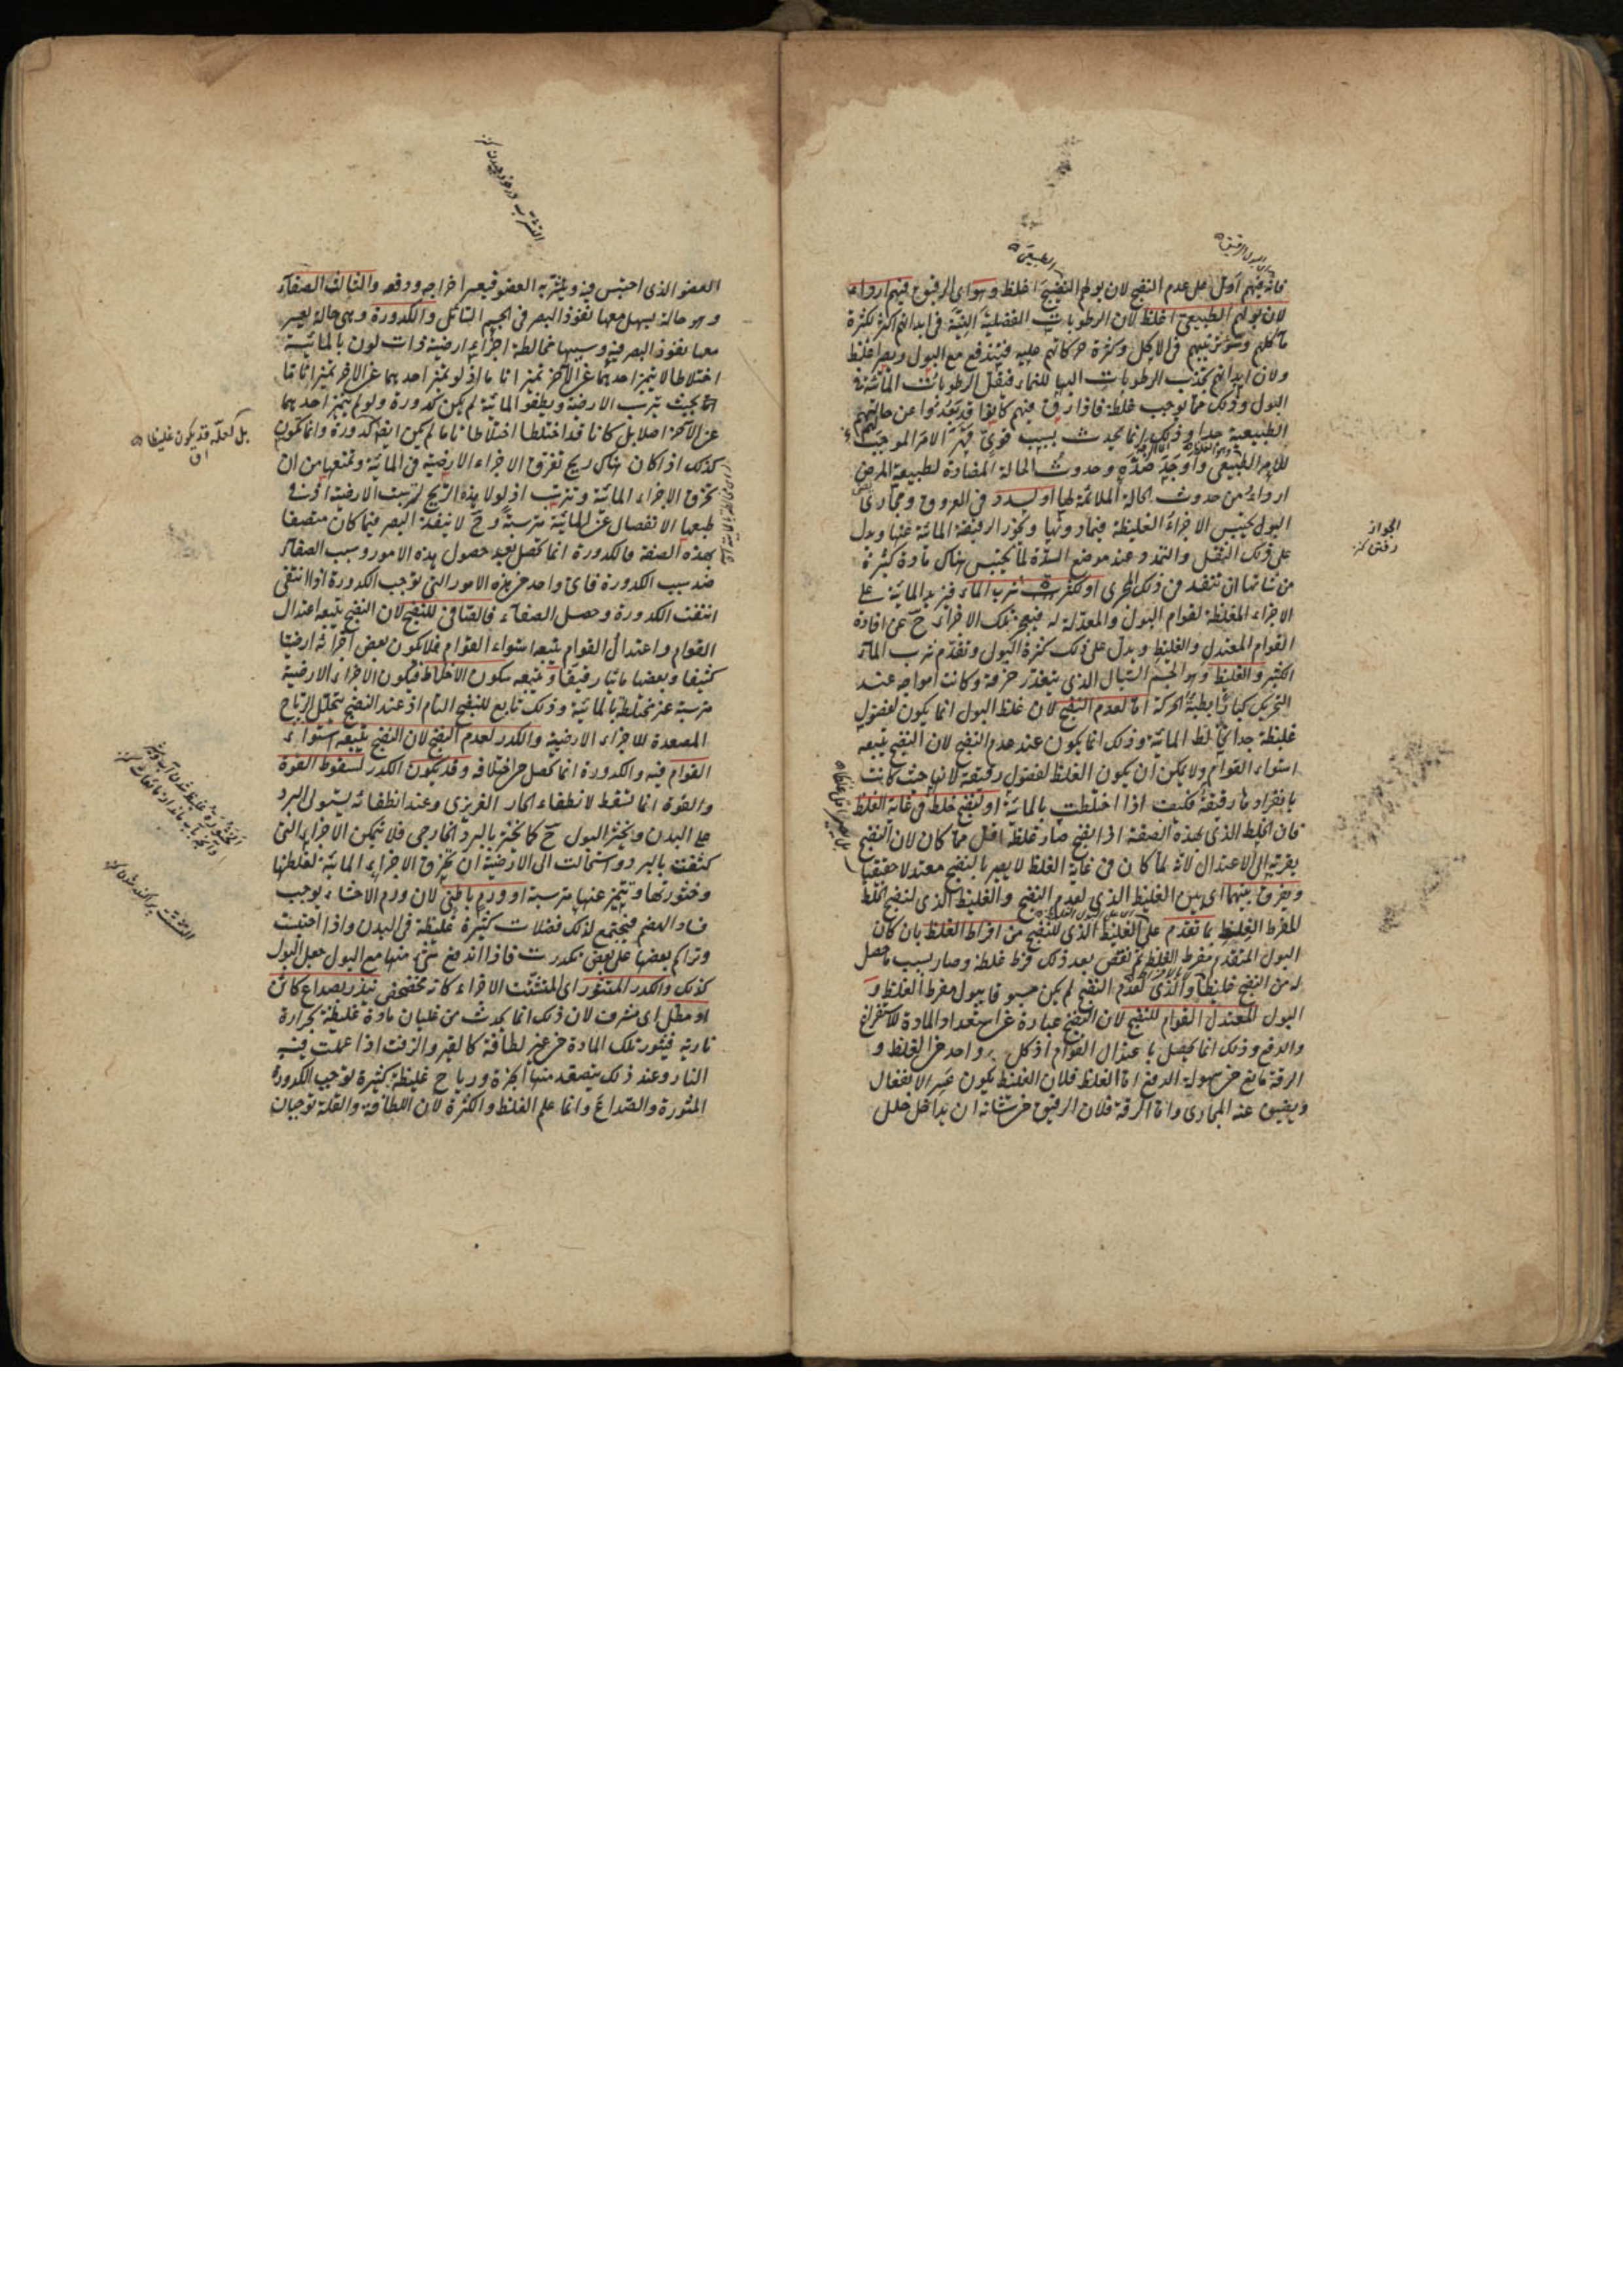 فانه فيهم ادل على عدم النضج لان بولهم النضيج اغلظ وهو اى الرقيق فيهم اردأ
لان بولهم الطبيعى اغلظ لان الرطوبات الفضلية النية فى ابدانهم اكثر لكثرة
اكلهم وسوء ترتيبهم فى الاكل وكثرة حركاتهم عليه فيندفع مع البول ويصير اغلظ
ولان ابدانهم تجذب الرطوبات اليها للنماء فتقل الرطوبات المائية فى
البول وذلك مما يوجب غلظه فاذا رق فيهم كانوا قد بعدوا عن حالتهم
الطبيعية جدا وذلك انما يحدث بسبب قوى قهر الامر الموجب
للامر الطبيعى واوجد ضده وحدوث الحالة المضادة لطبيعة المرض
اردأ من حدوث الحالة الملائمة لها او لسدد فى العروق ومجارى
البول يحتبس الاجزاء الغليظة فيما دونها ويجوز الرقيقة المائية عنها ويدل
على ذلك الثقل والتمدد عند موضع السدة لما يحتبس هناك مادة كثيرة
من شانها ان تنفذ فى ذلك المجرى او لكثرة شرب الماء فيزيد المائية على
الاجزاء المغلظة لقوام البول والمعدلة له فيعجز تلك الاجزاء ح عن افادة
القوام المعتدل والغليظ ويدل على ذلك كثرة البول وتقدم شرب الماء
الكثير والغليظ وهو الجسم السيال الذى يتعذر خرقه وكانت امواجه عند
التحريك كبارا بطيئة الحركة اما لعدم النضج لان غلظ البول انما يكون لفضول
غليظة جدا تخالط المائية وذلك انما يكون عند عدم النضج لان النضج يتبعه
استواء القوام ولا يمكن ان يكون الغلظ لفضول رقيقة لانها حيث كانت
بانفرادها رقيقة فكيف اذا اختلطت بالمائية او لنضج خلط فى غاية الغلظ
فان الخلط الذى بهذه الصفة اذا نضج صار غلظه اقل مما كان لان النضج
يقربه الى الاعتدال لانه لما كان فى غاية الغلظ لا يصير بالنضج معتدلا حقيقيا
ويفرق بينهما اى بين الغليظ الذى لعدم النضج والغليظ الذى لنضج الخلط
المفرط الغليظ بما تقدم على الغليظ الذى للنضج من افراط الغلظ بان كان
البول المتقدم مفرط الغلظ ثم نقص بعد ذلك فرط غلظه وصار بسبب ما حصل
له من النضج غليظا والذى لعدم النضج لم يكن مسبوقا ببول مفرط الغلظ و
البول المعتدل القوام للنضج لان النضج عبارة عن استعداد المادة للاستفراغ
والدفع وذلك انما يحصل باعتدال القوام اذ كل واحد من الغلظ و
الرقة مانع عن سهولة الدفع اما الغلظ فلان الغليظ يكون عسر الانفعال
ويضيق عنه المجارى واما الرقة فلان الرقيق من شانه ان يداخل خلل
العضو الذى احتبس فيه ويتشربه العضو فيعسر اخراجه ودفعه والثالث الصفاء
وهو حالة يسهل معها نفوذ البصر فى الجسم السائل والكدورة وهى حالة يعسر
معها نفوذ البصر فيه وسببها مخالطة اجزاء ارضية ذات لون بالمائية
اختلاطا لا يتميز احدهما عن الآخر تميزا تاما اذ لو تميز احدهما عن الآخر تميزا تاما
بحيث يترسب الارضية ويطفو المائية لم يكن كدورة ولو لم يتميز احدهما
عن الآخر اصلا بل كانا قد اختلطا اختلاطا تاما لم يكن ايضا كدورة وانما يكون
كذلك اذا كان هناك ريح تفرق الاجزاء الارضية فى المائية وتمنعها من ان
تخرق الاجزاء المائية وتترسب اذ لولا هذه الريح لترسبت الارضية اذ فى
طبعها الانفصال عن المائية مترسبة وح لا ينفذ البصر فيما كان متصفا
بهذه الصفة فالكدورة انما تحصل بعد حصول هذه الامور وسبب الصفاء
ضد سبب الكدورة فاى واحد من هذه الامور التى توجب الكدورة اذا انتفى
انتفت الكدورة وحصل الصفاء فالصافى للنضج لان النضج يتبعه اعتدال
القوام واعتدال القوام يتبعه استواء القوام فلا يكون بعض اجزائه ارضيا
كثيفا وبعضها مائيا رقيقا ويتبعه سكون الاخلاط فيكون الاجزاء الارضية
مترسبة غير مختلطة بالمائية وذلك تابع للنضج التام اذ عند النضج يتحلل الرياح
المصعدة للاجزاء الارضية والكدر لعدم النضج لان النضج يتبعه استواء
القوام فيه والكدورة انما تحصل من اختلافه وقد يكون الكدر لسقوط القوة
والقوة انما تسقط لانطفاء الحار الغريزى وعند انطفائه يستولى البرد
على البدن ويخثر البول ح كما يخثر بالبرد الخارجى فلا يتمكن الاجزاء التى
كثفت بالبرد واستحالت الى الارضية ان تخرق الاجزاء المائية لغلظها
وخثورتها وتتميز عنها مترسبة او ورم باطنى لان ورم الاحشاء يوجب
فساد الهضم فيجتمع لذلك فضلات كثيرة غليظة فى البدن واذا احتبست
وتراكم بعضها على بعض تكدرت فاذا اندفع شىء منها مع البول جعل البول
كذلك والكدر المتثور اى المتشتت الاجزاء كانه يتخضخض ينذر بصداع كائن
او مطل اى مشرف لان ذلك انما يحدث من غليان مادة غليظة بحرارة
نارية فيثور تلك المادة من غير لطافة كالقير والزفت اذا عملت فيه
النار وعند ذلك يتصعد منها ابخرة ورياح غليظة كثيرة توجب الكدورة
المثورة والصداع وانما علم الغلظ والكثرة لان اللطافة والقلة توجبان